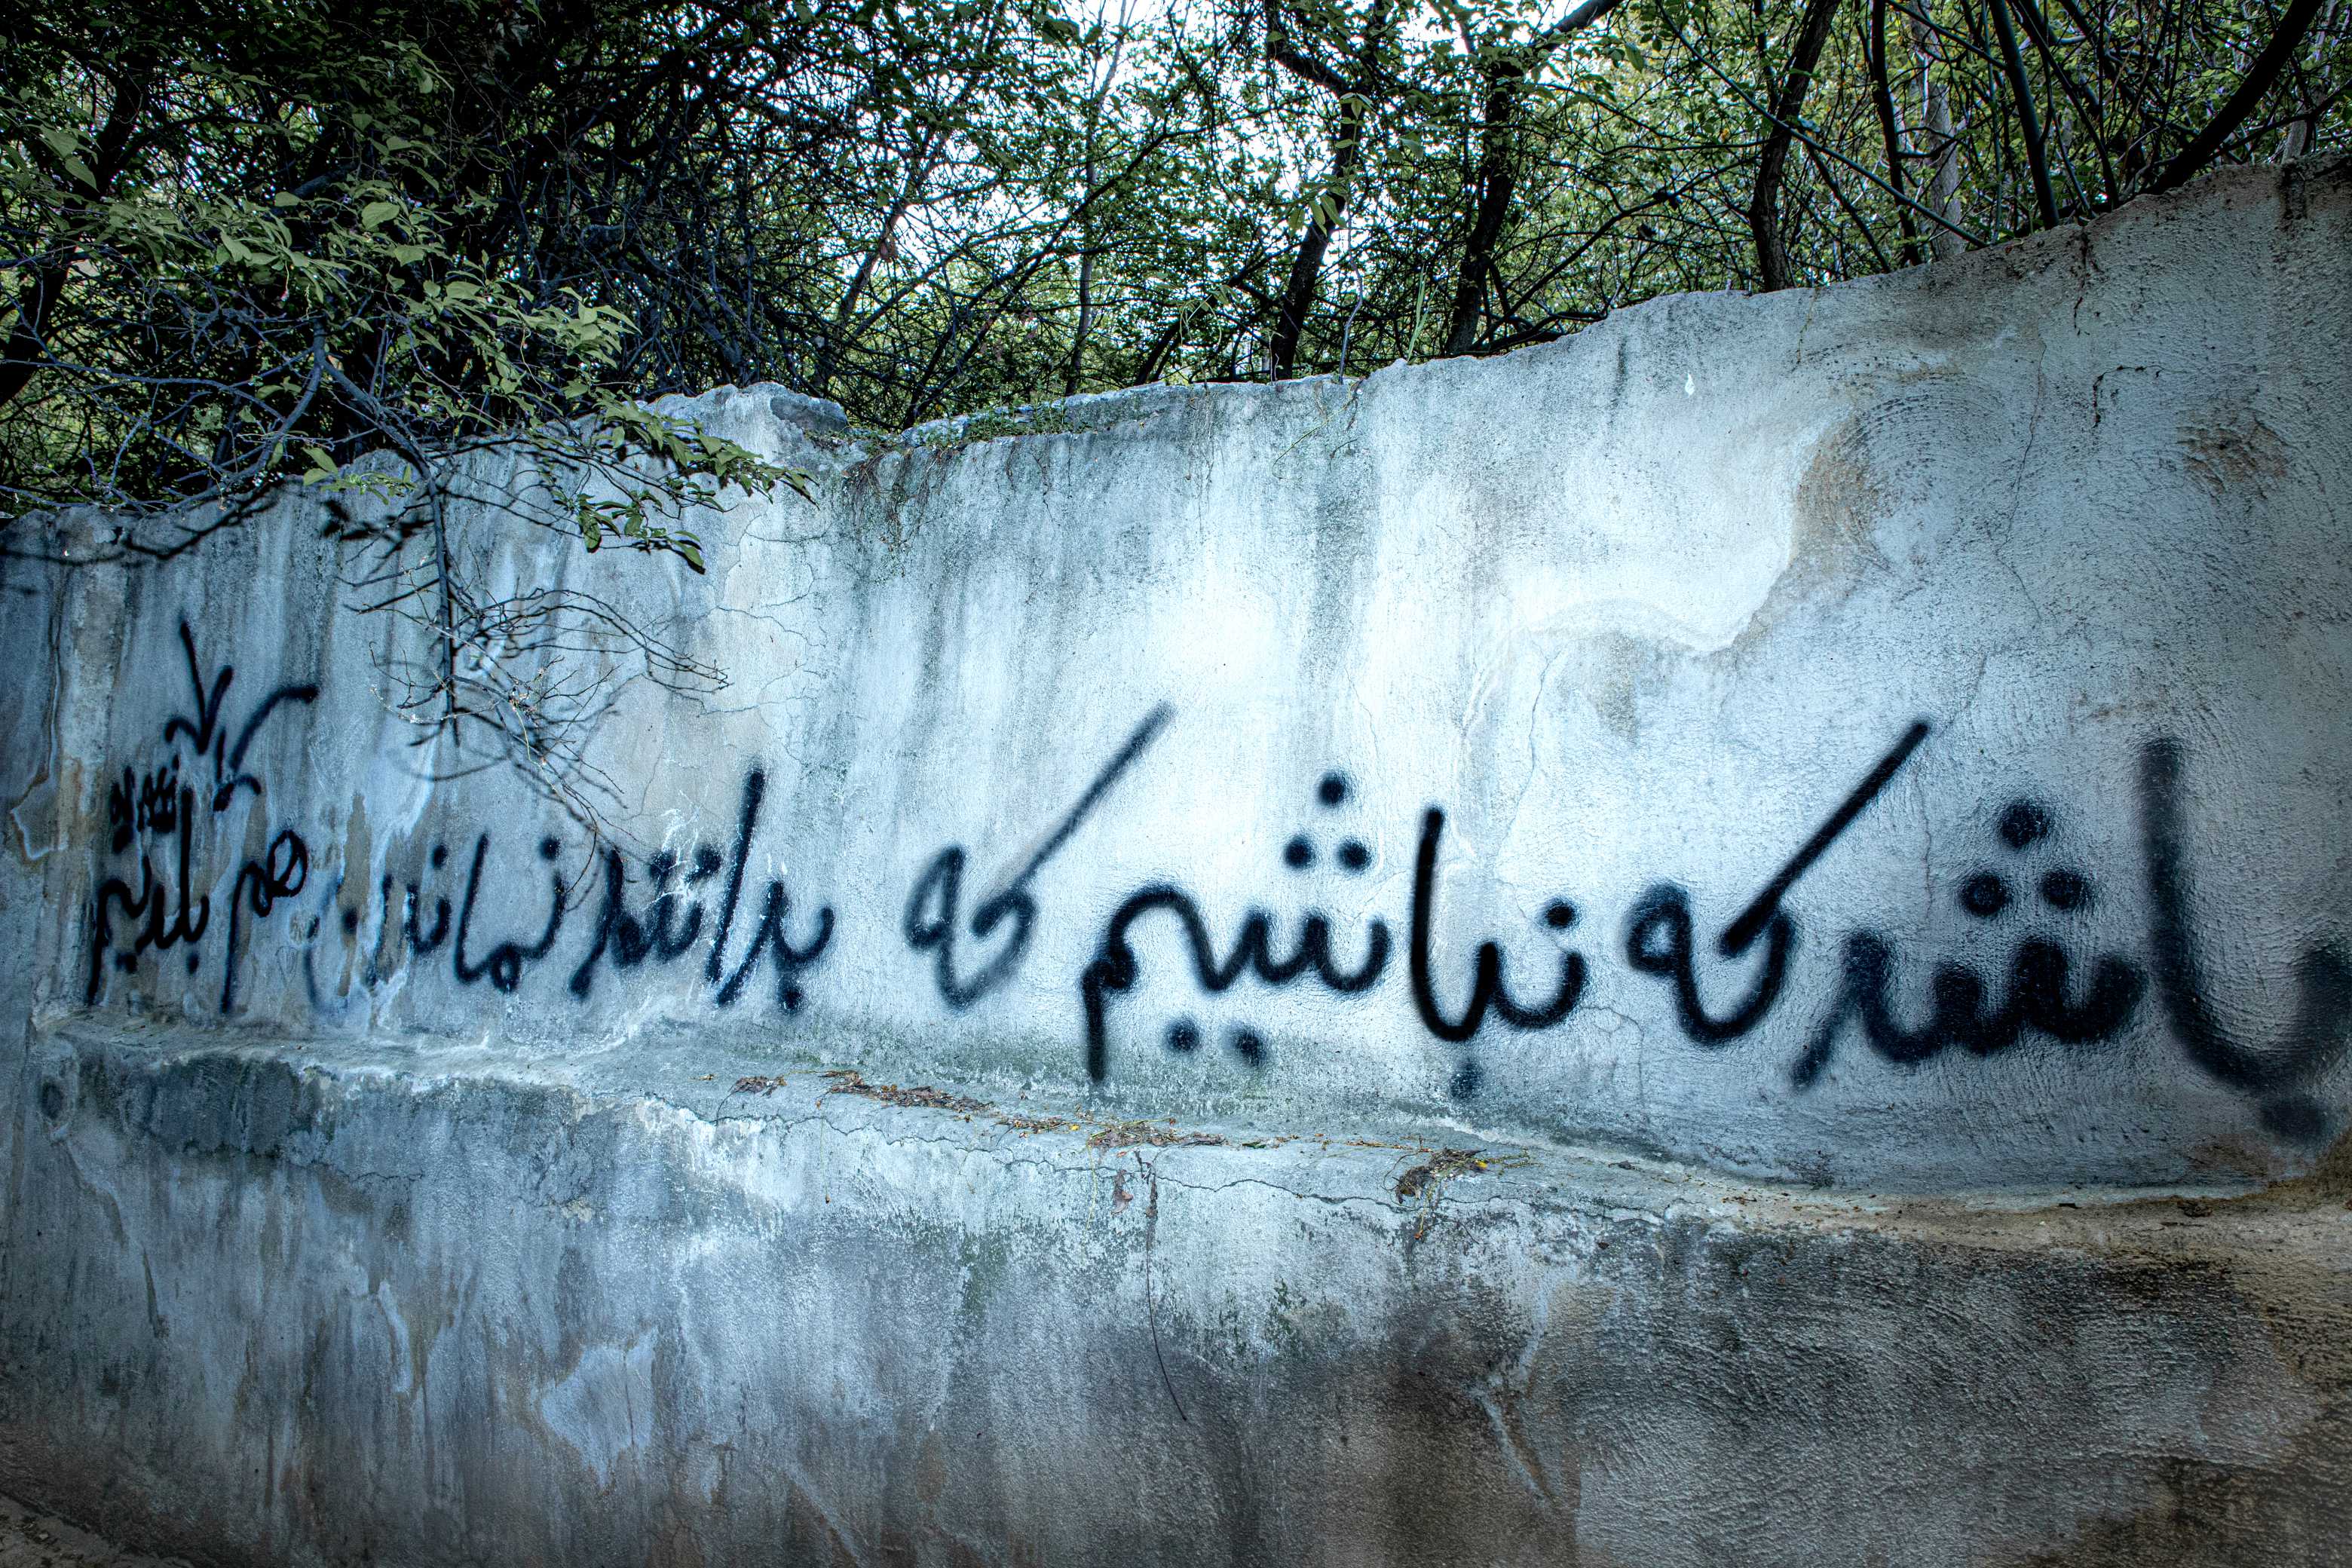 باشد که نباشیم که بدانند نماندن هم بلدیم